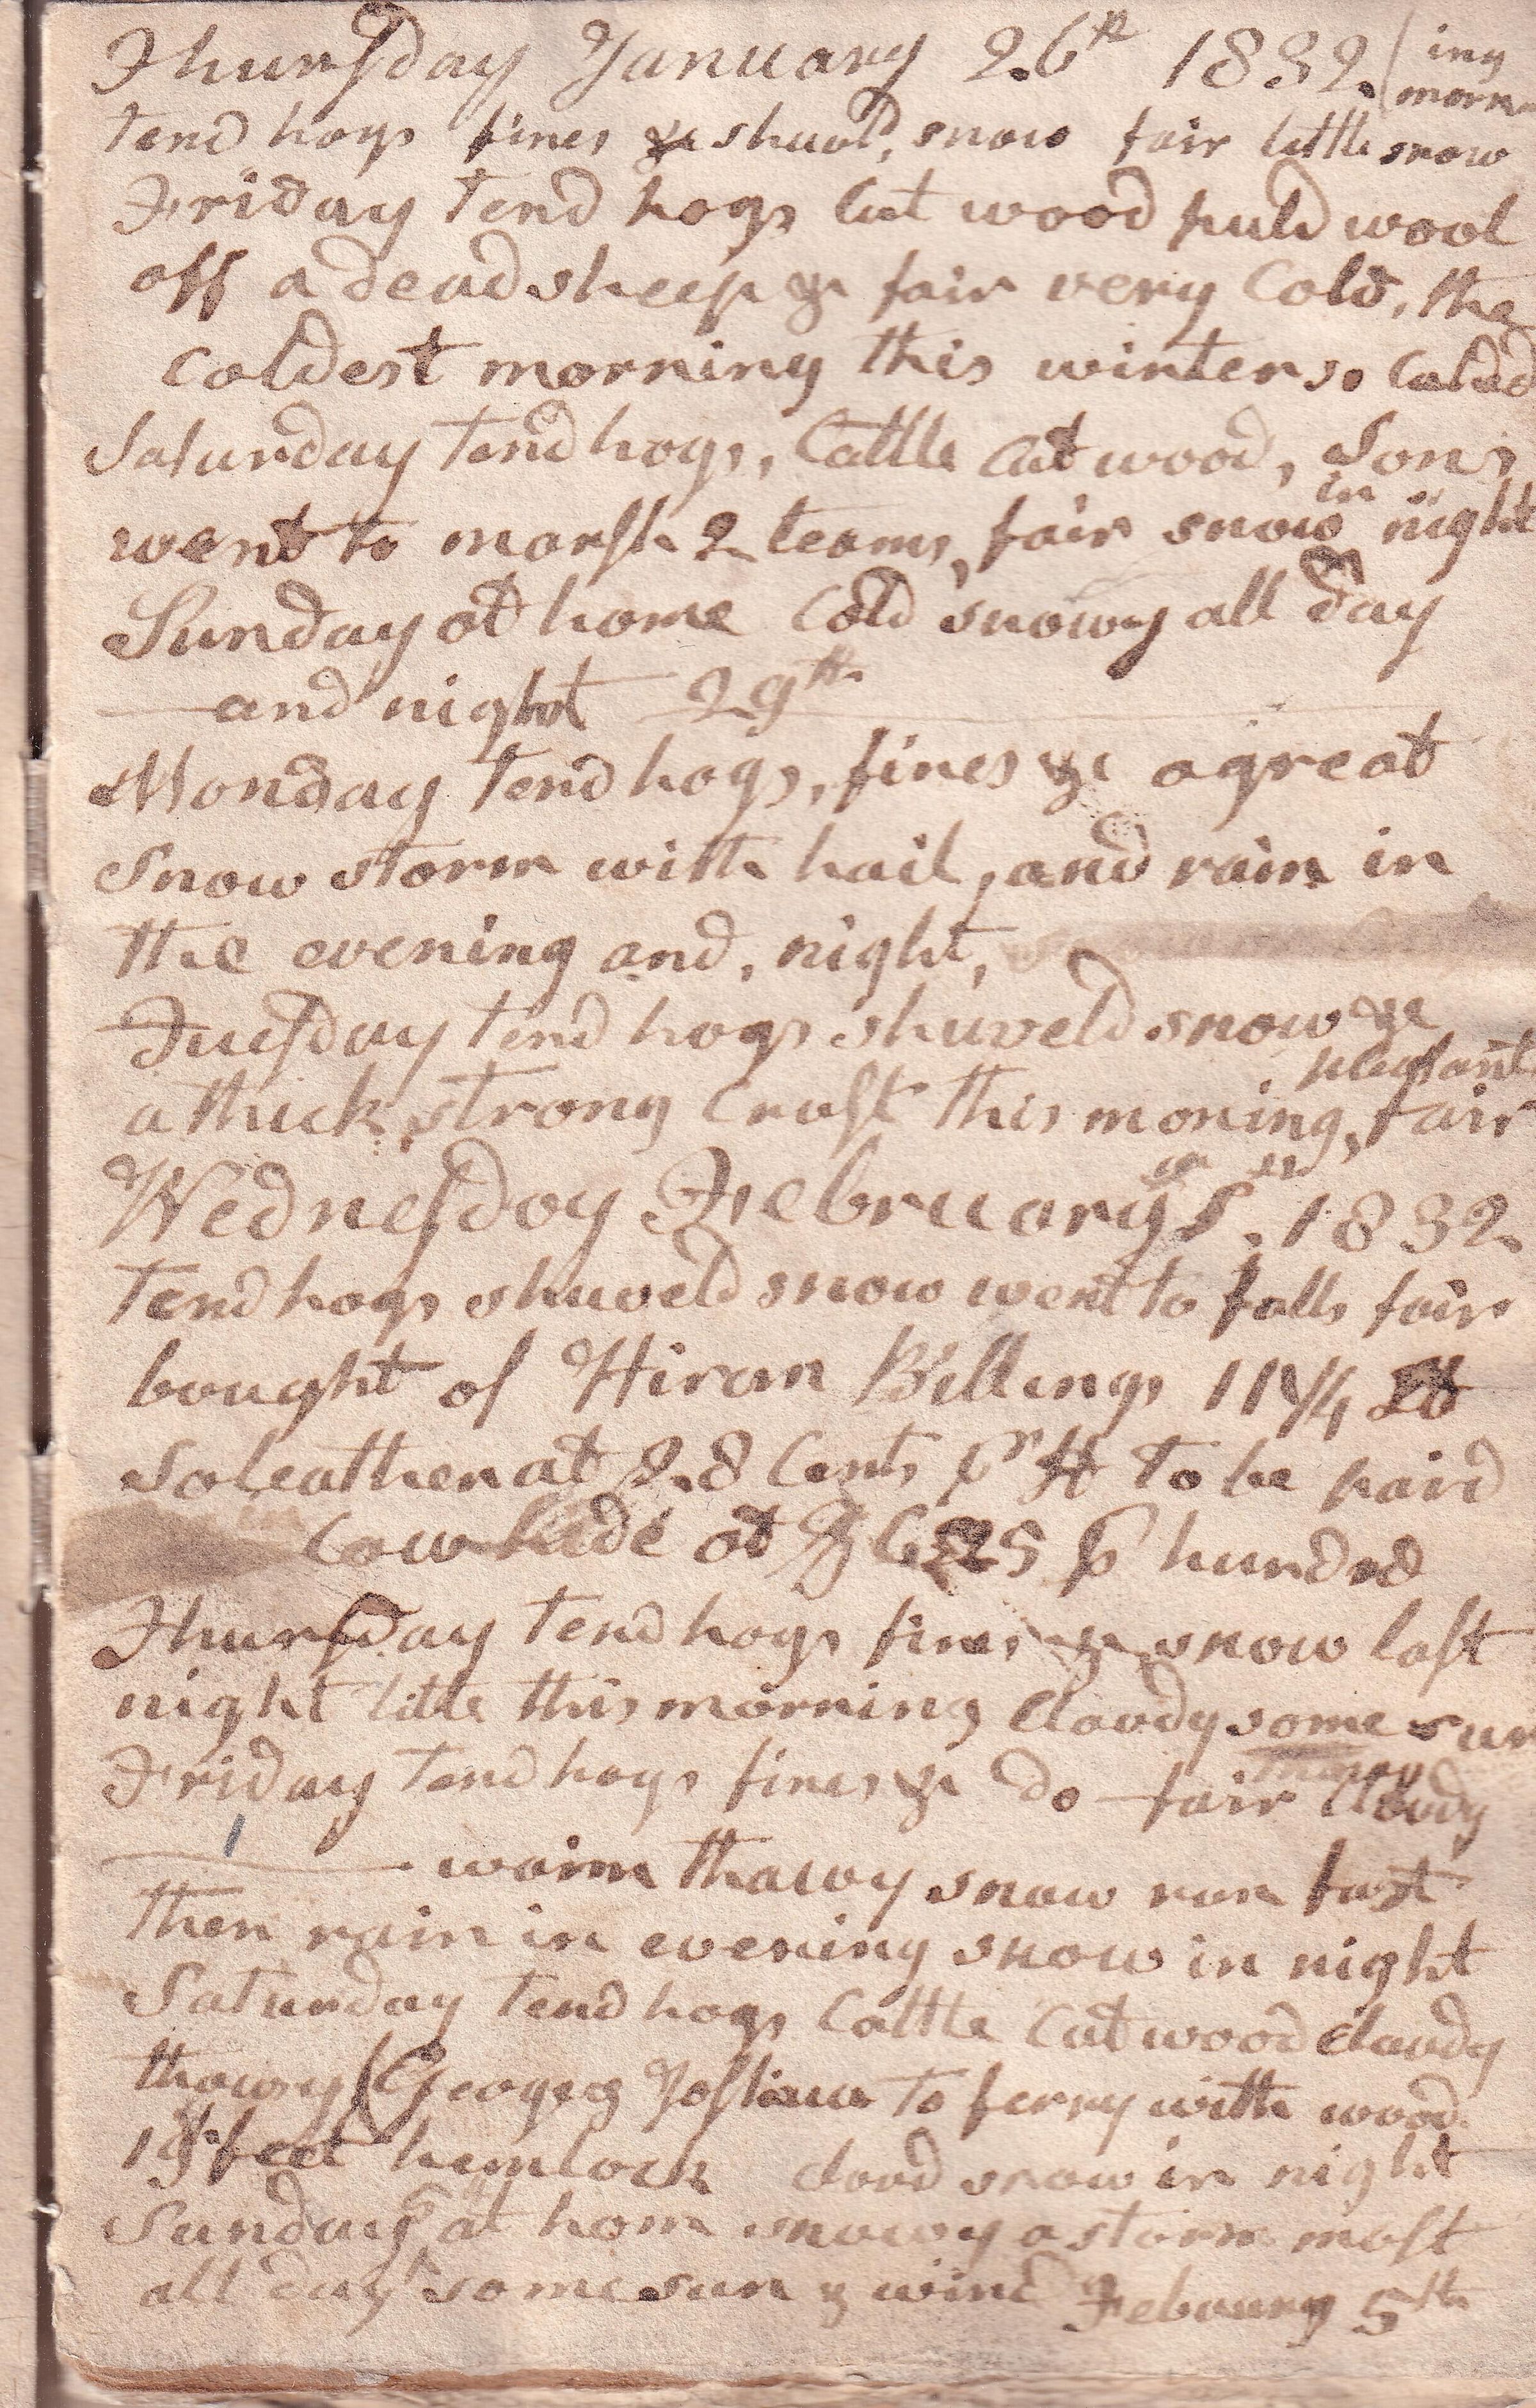 Thursday January 26th 1832. (ing
morn
tend hogs fires &c shuvl, snow fair little snow
Friday tend hogs Cut wood puld wool
off a dead sheep &c fair very Cold, the
coldest morning this winter so
Saturday tend hogs, Cattle Cut wood, Sons
went to marsh 2 teams, fair snow in night
Sunday at home Cold snowy all day
and night 29th
Monday tend hogs, fires &c a great
Snow storm with hail, and rain in
the evening and, night,
Tuesday tend hogs shuveld snow &c
pleasant
a thick strong Crust this moning, fair
Wednesday February 1832
tend hogs shuveld snow went to falls fair
bought of Hiram Billings 11 1/4 lb
soleather at 28 Cents pr lb to be paid
Cow hide at $ 6 25 pr hundred
Thursday tend hogs fires &c snow last
night little this morning Cloudy some sun
Friday tend hogs fires &c do fair Cloudy
warm thawy snow run fast
then rain in evening snow in night
Saturday tend hogs Cattle Cut wood cloudy
thawy (George Joshua to ferry with wood
feet hemlock cloud snow in night
Sunday at hom snowy a storm most
all day some sun & wind Febuary 5th